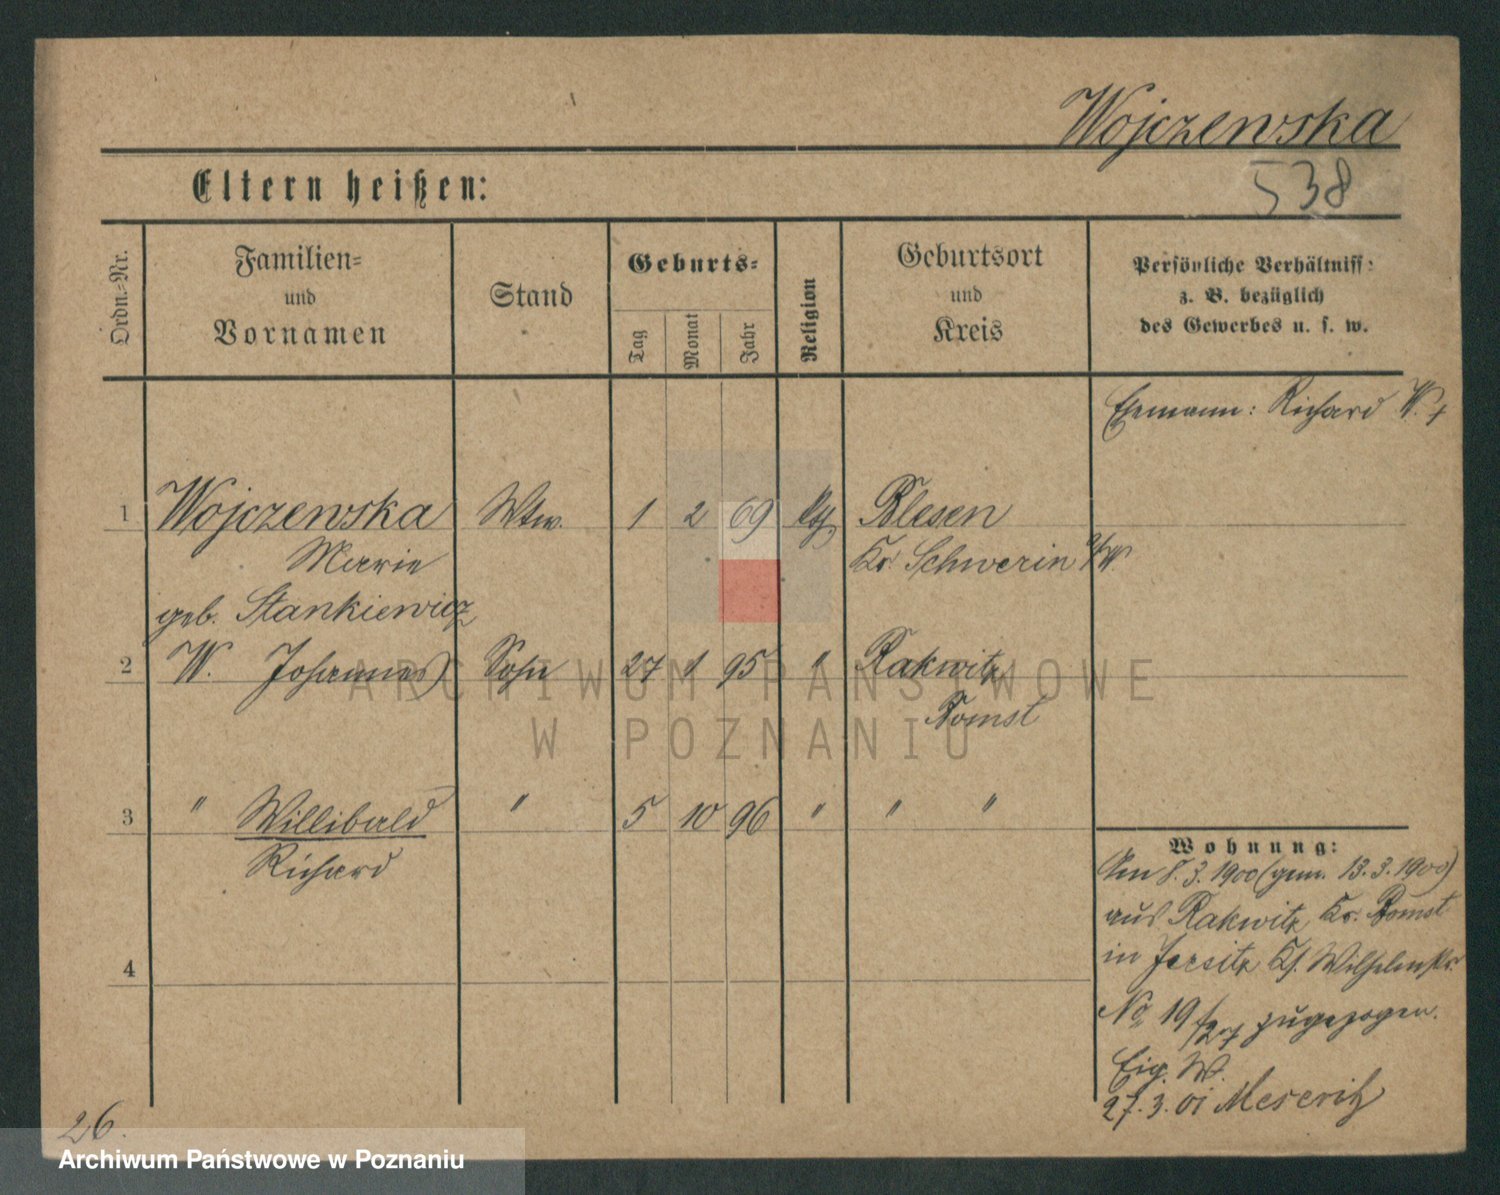 Wojczewska
538
Eltern heißen:
Ordn.-Nr.
Familien-
und
Vornamen
Stand
Geburts-
Tag
Monat
Jahr
Religion
Geburtsort
und
Kreis
Persönliche Verhältniss:
z. B. bezüglich
des Gewerbes u. s. w.
Ehemann: Richard W. +
1 Wojczewska Wtw. 1 2 69 Blesen
Marie Kr. Schwerin a/W.
geb. Stankiewicz
2 W. Johannes Sohn 27 1 95 " Rakwitz
Bomst
3 " Willibald " 5 10 96 " " "
Richard
4
Wohnung:
Am 8. 3. 1900 (gem. 13. 3. 1900)
aus Rakwitz Kr. Bomst
in Jersitz Wilhelmstr.
No 19 zugezogen.
Eig. W.
27. 3. 01 Meseritz
26.
ARCHIWUM PAŃSTWOWE
W POZNANIU
Archiwum Państwowe w Poznaniu